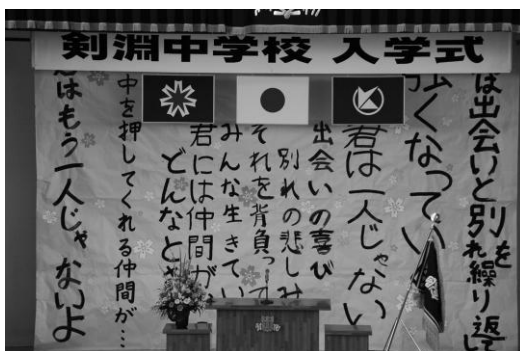 剣淵中学校 入学式
は出会いと別れを繰り返して
強くなってい
君は一人じゃない
出会いの喜び
別れの悲しみ
それを背負って
みんな生きてい
君には仲間が
どんなと
中を押してくれる仲間が…
はもう一人じゃないよ